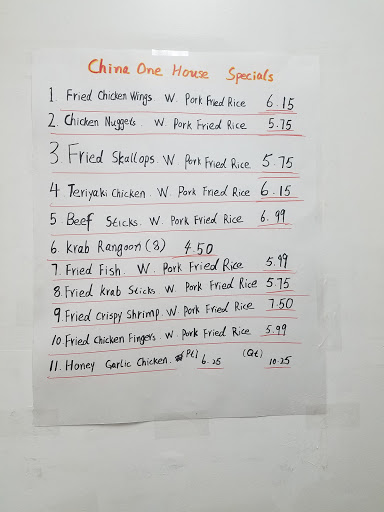 China One House Specials
1. Fried Chicken Wings W. Pork Fried Rice 6.15
2. Chicken Nuggets. W. Pork Fried Rice 5.75
3 Fried Skallops. W. Pork Fried Rice 5.75
4. Teriyaki Chicken. W. Pork Fried Rice 6.15
5 Beef Sticks. W. Pork Fried Rice 6.99
6. Krab Rangoon (8) 4.50
7. Fried Fish. W. Pork Fried Rice 5.99
8 Fried Krab Sticks W. Pork Fried Rice 5.75
9. Fried Crispy Shrimp. W. Pork Fried Rice 7.50
10. Fried Chicken Fingers. W. Pork Fried Rice 5.99
11. Honey Garlic Chicken. (Pt) 6.25 (Qt) 10.25